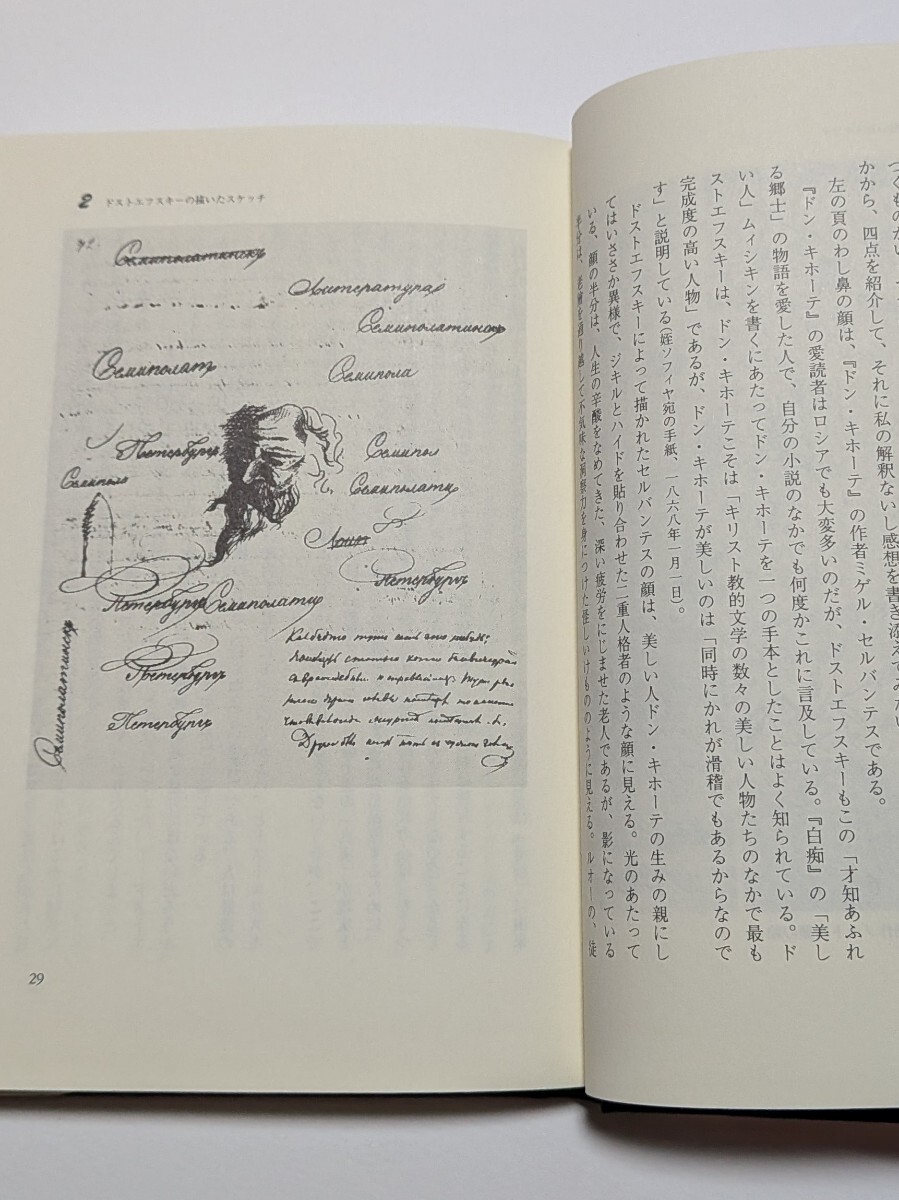 つくものがい
かから、四点を紹介して、それに私の解釈ないし感想を書き添えてみたい
左の頁のわし鼻の顔は、『ドン・キホーテ』の作者ミゲル・セルバンテスである。
『ドン・キホーテ』の愛読者はロシアでも大変多いのだが、ドストエフスキーもこの「才知あふれ
る郷士」の物語を愛した人で、自分の小説のなかでも何度かこれに言及している。『白痴』の「美し
い人」ムィシキンを書くにあたってドン・キホーテを一つの手本としたことはよく知られている。ド
ストエフスキーは、ドン・キホーテこそは「キリスト教的文学の数々の美しい人物たちのなかで最も
完成度の高い人物」であるが、ドン・キホーテが美しいのは「同時にかれが滑稽でもあるからなので
す」と説明している(姪ソフィヤ宛の手紙、一八六八年一月一日)。
ドストエフスキーによって描かれたセルバンテスの顔は、美しい人ドン・キホーテの生みの親にし
てはいささか異様で、ジキルとハイドを貼り合わせた二重人格者のような顔に見える。光のあたって
いる、顔の半分は、人生の辛酸をなめてきた、深い疲労をにじませた老人であるが、影になっている
半分は、老獪を通り越して不気味な洞察力を身につけた怪しいけもののように見える。ルオーの、徒
2 ドストエフスキーの描いたスケッチ
Семиполатинскъ
Литература
Семиполатинскъ
Семиполатъ
Семипола
Петербургъ
Семипол
Семиполо
Семиполати
Петербургъ
Петербургъ Семиполати
Петербургъ
Петербургъ
Семиполатинскъ
29